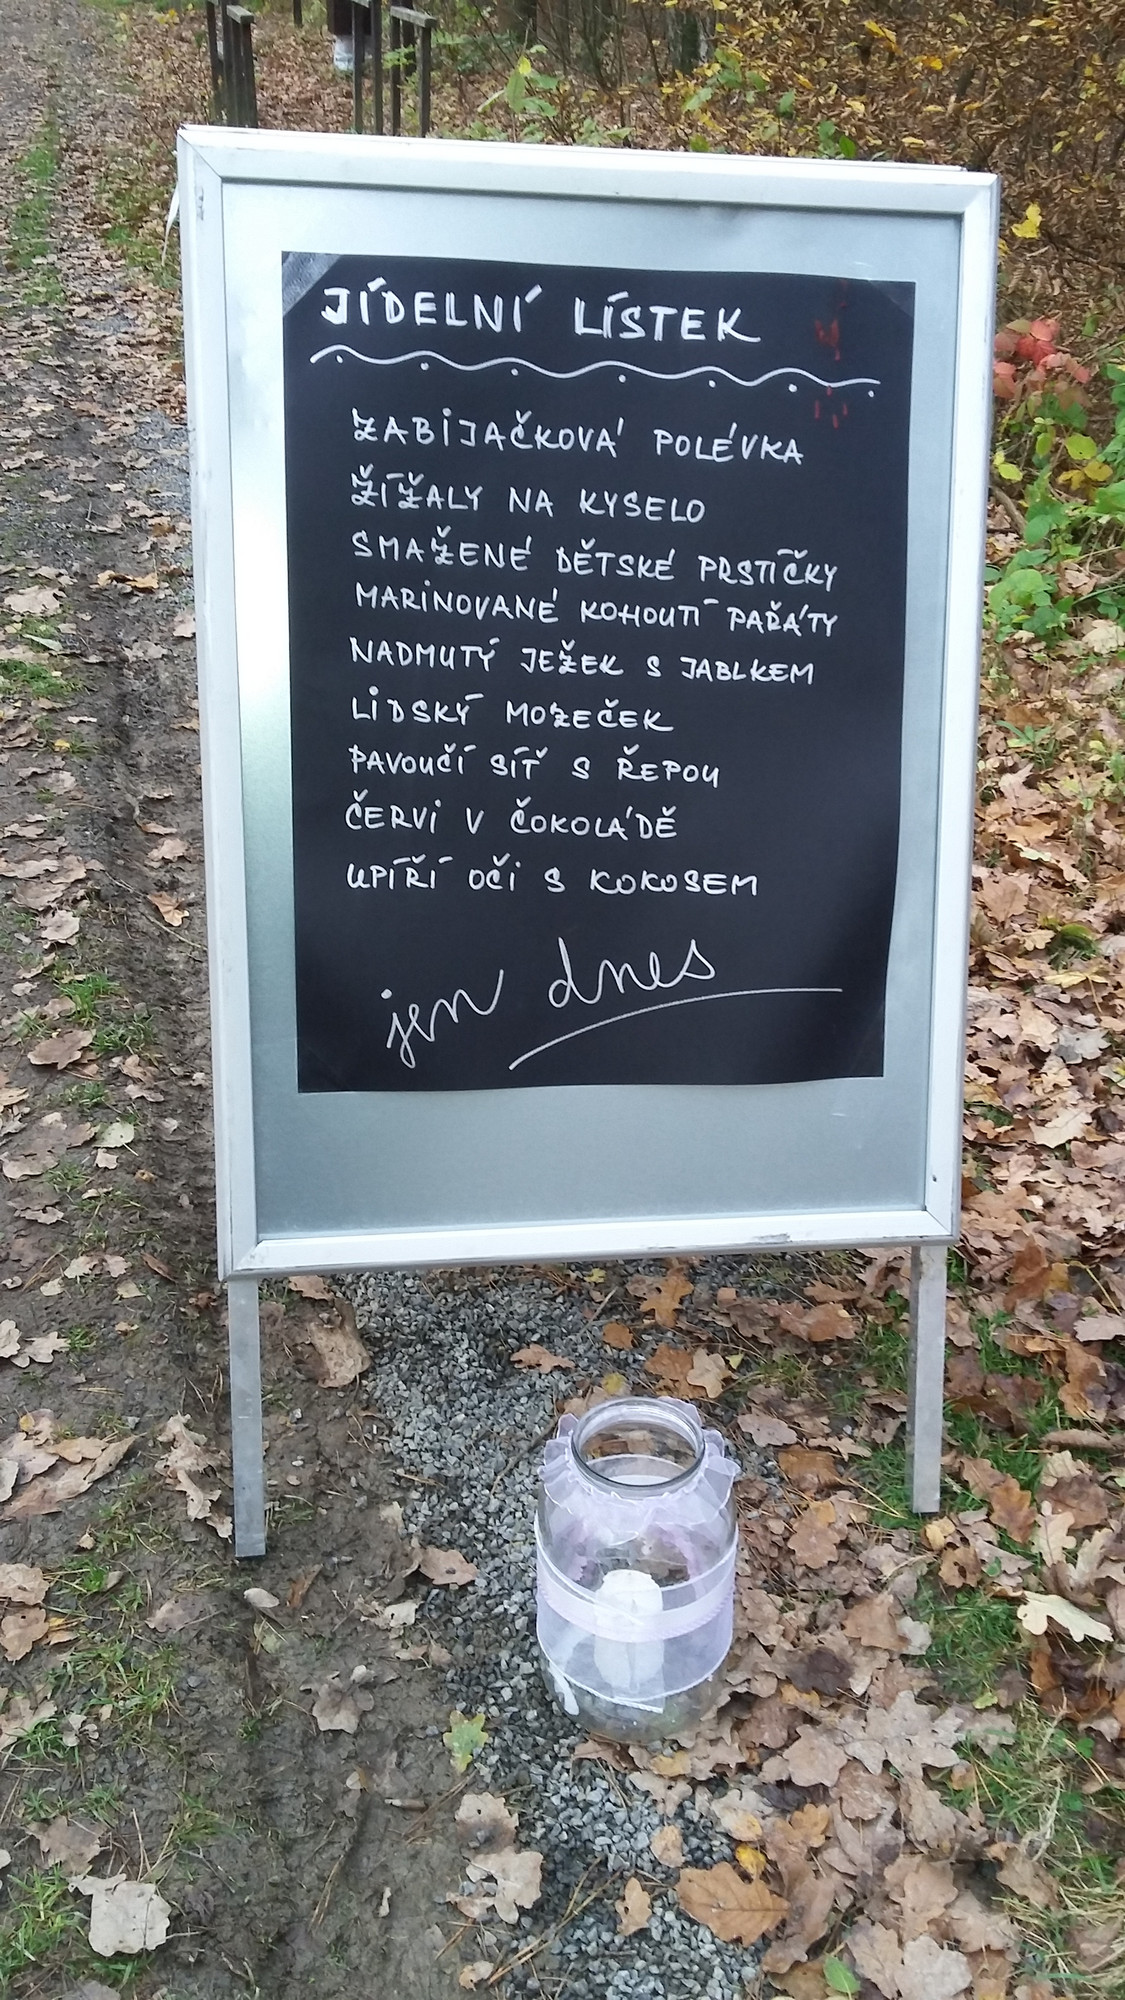 JÍDELNÍ LÍSTEK
ZABIJAČKOVÁ POLÉVKA
ŽÍŽALY NA KYSELO
SMAŽENÉ DĚTSKÉ PRSTÍČKY
MARINOVANÉ KOHOUTÍ PAŘÁTY
NADMUTÝ JEŽEK S JABLKEM
LIDSKÝ MOZEČEK
PAVOUČÍ SÍŤ S ŘEPOU
ČERVI V ČOKOLÁDĚ
UPÍŘÍ OČI S KOKOSEM
jen dnes